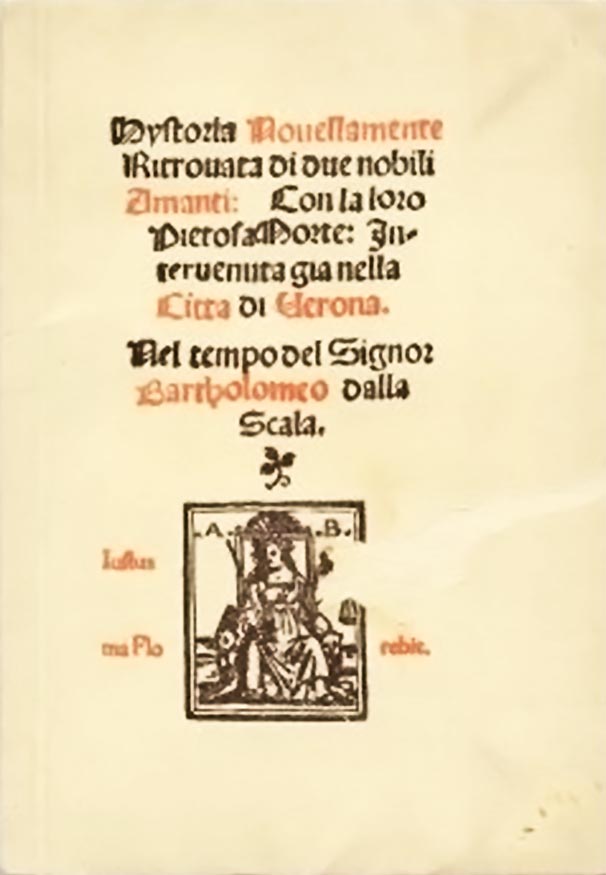 Hystoria Nouellamente
Ritrouata di due nobili
Amanti: Con la loro
Pietosa Morte: In-
teruenuta gia nella
Citta di Uerona.
Nel tempo del Signor
Bartholomeo dalla
Scala.
.A. .B.
Iustus
ma Flo rebit.